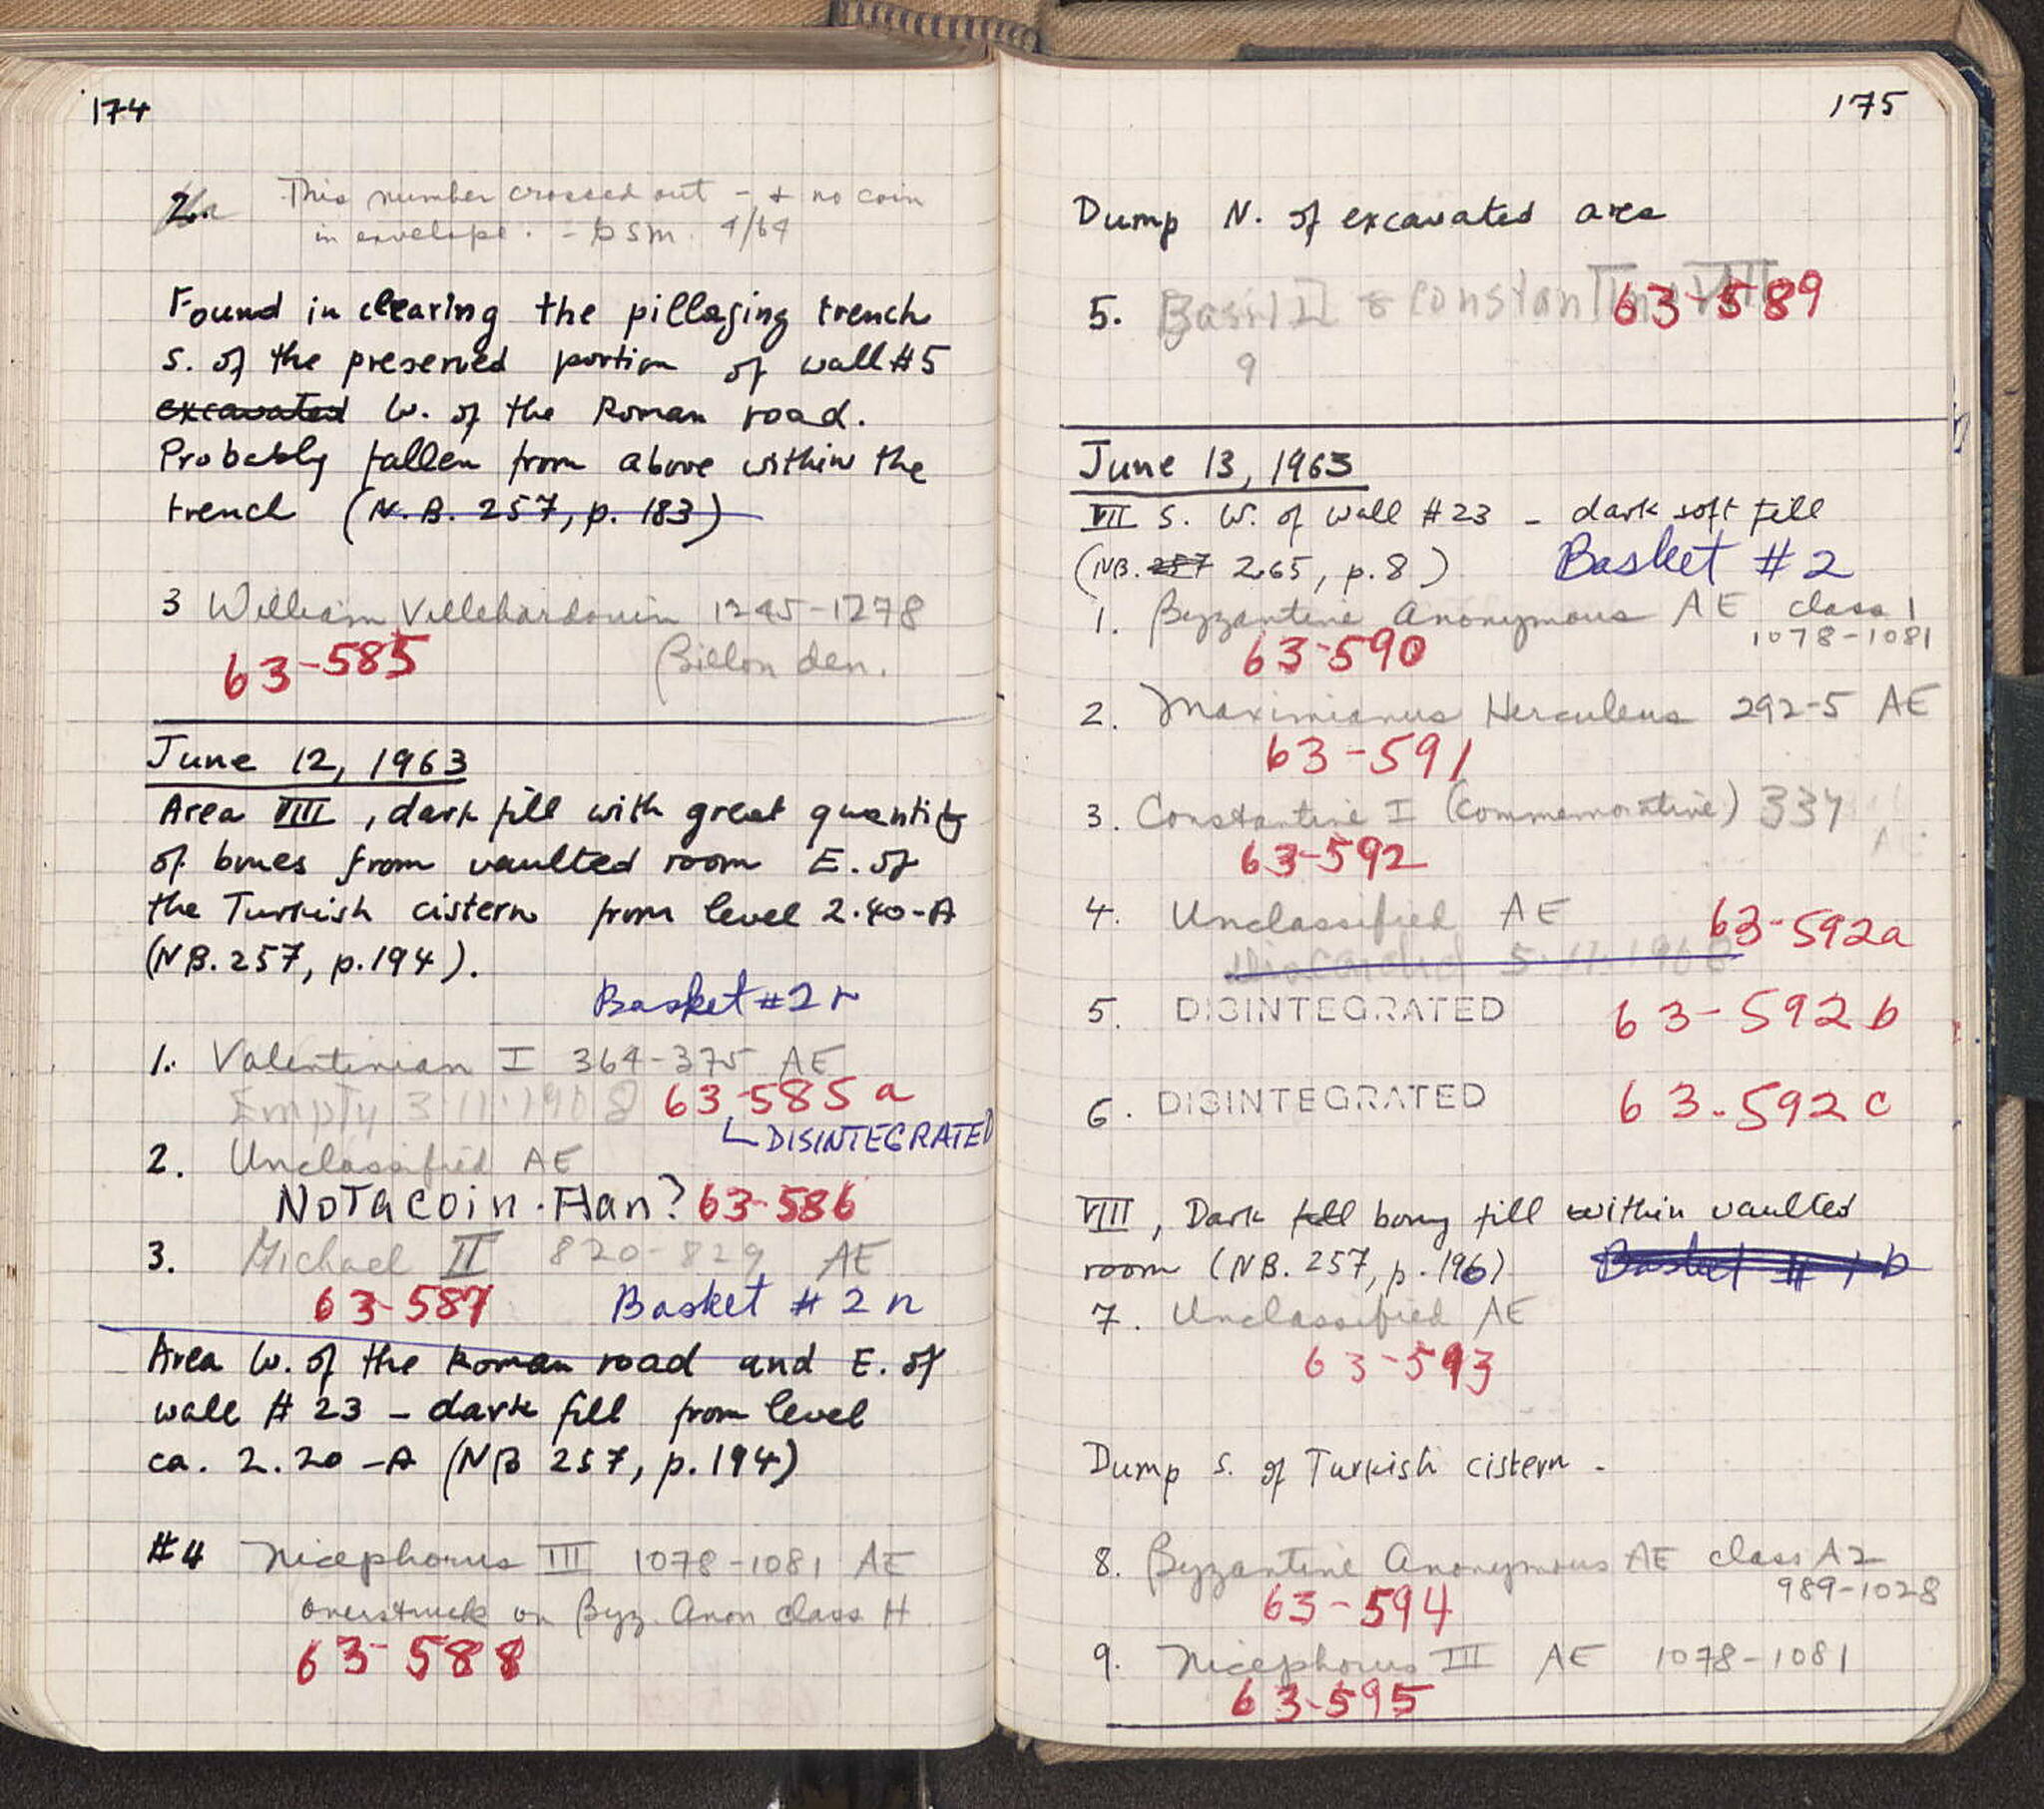 174
2a This number crossed out - + no coin
in envelope. - DSM. 4/64
Found in clearing the pillaging trench
S. of the preserved portion of wall #5
excavated W. of the Roman road.
Probably fallen from above within the
trench (N.B. 257, p. 183)
3 William Villehardouin 1245-1278
63-585 Billon den.
June 12, 1963
Area VIII, dark fill with great quantity
of bones from vaulted room E. of
the Turkish cistern from level 2.40-A
(NB. 257, p. 194).
Basket #2
1. Valentinian I 364-375 AE
Empty 3·11·1968 63-585a
DISINTEGRATED
2. Unclassified AE
NOT a COIN. Flan? 63-586
3. Michael II 820-829 AE
63-587 Basket #2
Area W. of the Roman road and E. of
wall #23 - dark fill from level
ca. 2.20-A (NB 257, p. 194)
#4 Nicephorus III 1078-1081 AE
overstruck on Byz. Anon class H
63-588
175
Dump N. of excavated area
5. Basil II & Constantine VIII 63-589
9
June 13, 1963
VII S. W. of wall #23 - dark soft fill
(NB. 257 265, p. 8) Basket #2
1. Byzantine Anonymous AE class I
63-590 1078-1081
2. Maximianus Herculeus 292-5 AE
63-591
3. Constantine I (Commemorative) 337
63-592
4. Unclassified AE 63-592a
Discarded 5·11·1968
5. DISINTEGRATED 63-592b
6. DISINTEGRATED 63-592c
VIII, Dark fill bony fill within vaulted
room (NB. 257, p. 196) Basket #1b
7. Unclassified AE
63-593
Dump S. of Turkish cistern.
8. Byzantine Anonymous AE class A2
63-594 989-1028
9. Nicephorus III AE 1078-1081
63-595